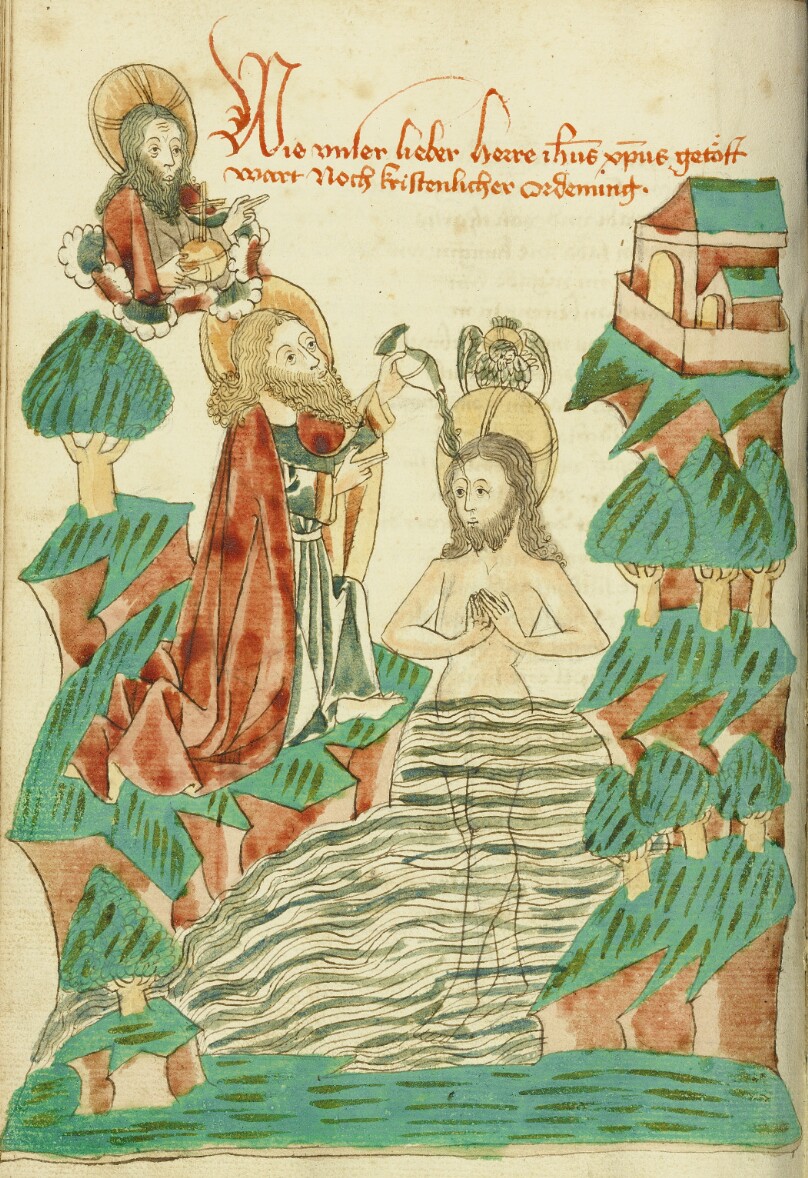 Wie vnser lieber herre ihūs xp̄us getöft
wart Noch kristenlicher Ordenung.